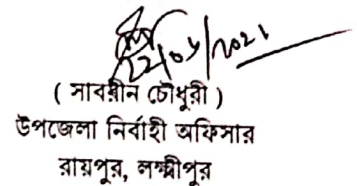 22/06/2021
( সাবরীন চৌধুরী )
উপজেলা নির্বাহী অফিসার
রায়পুর, লক্ষ্মীপুর